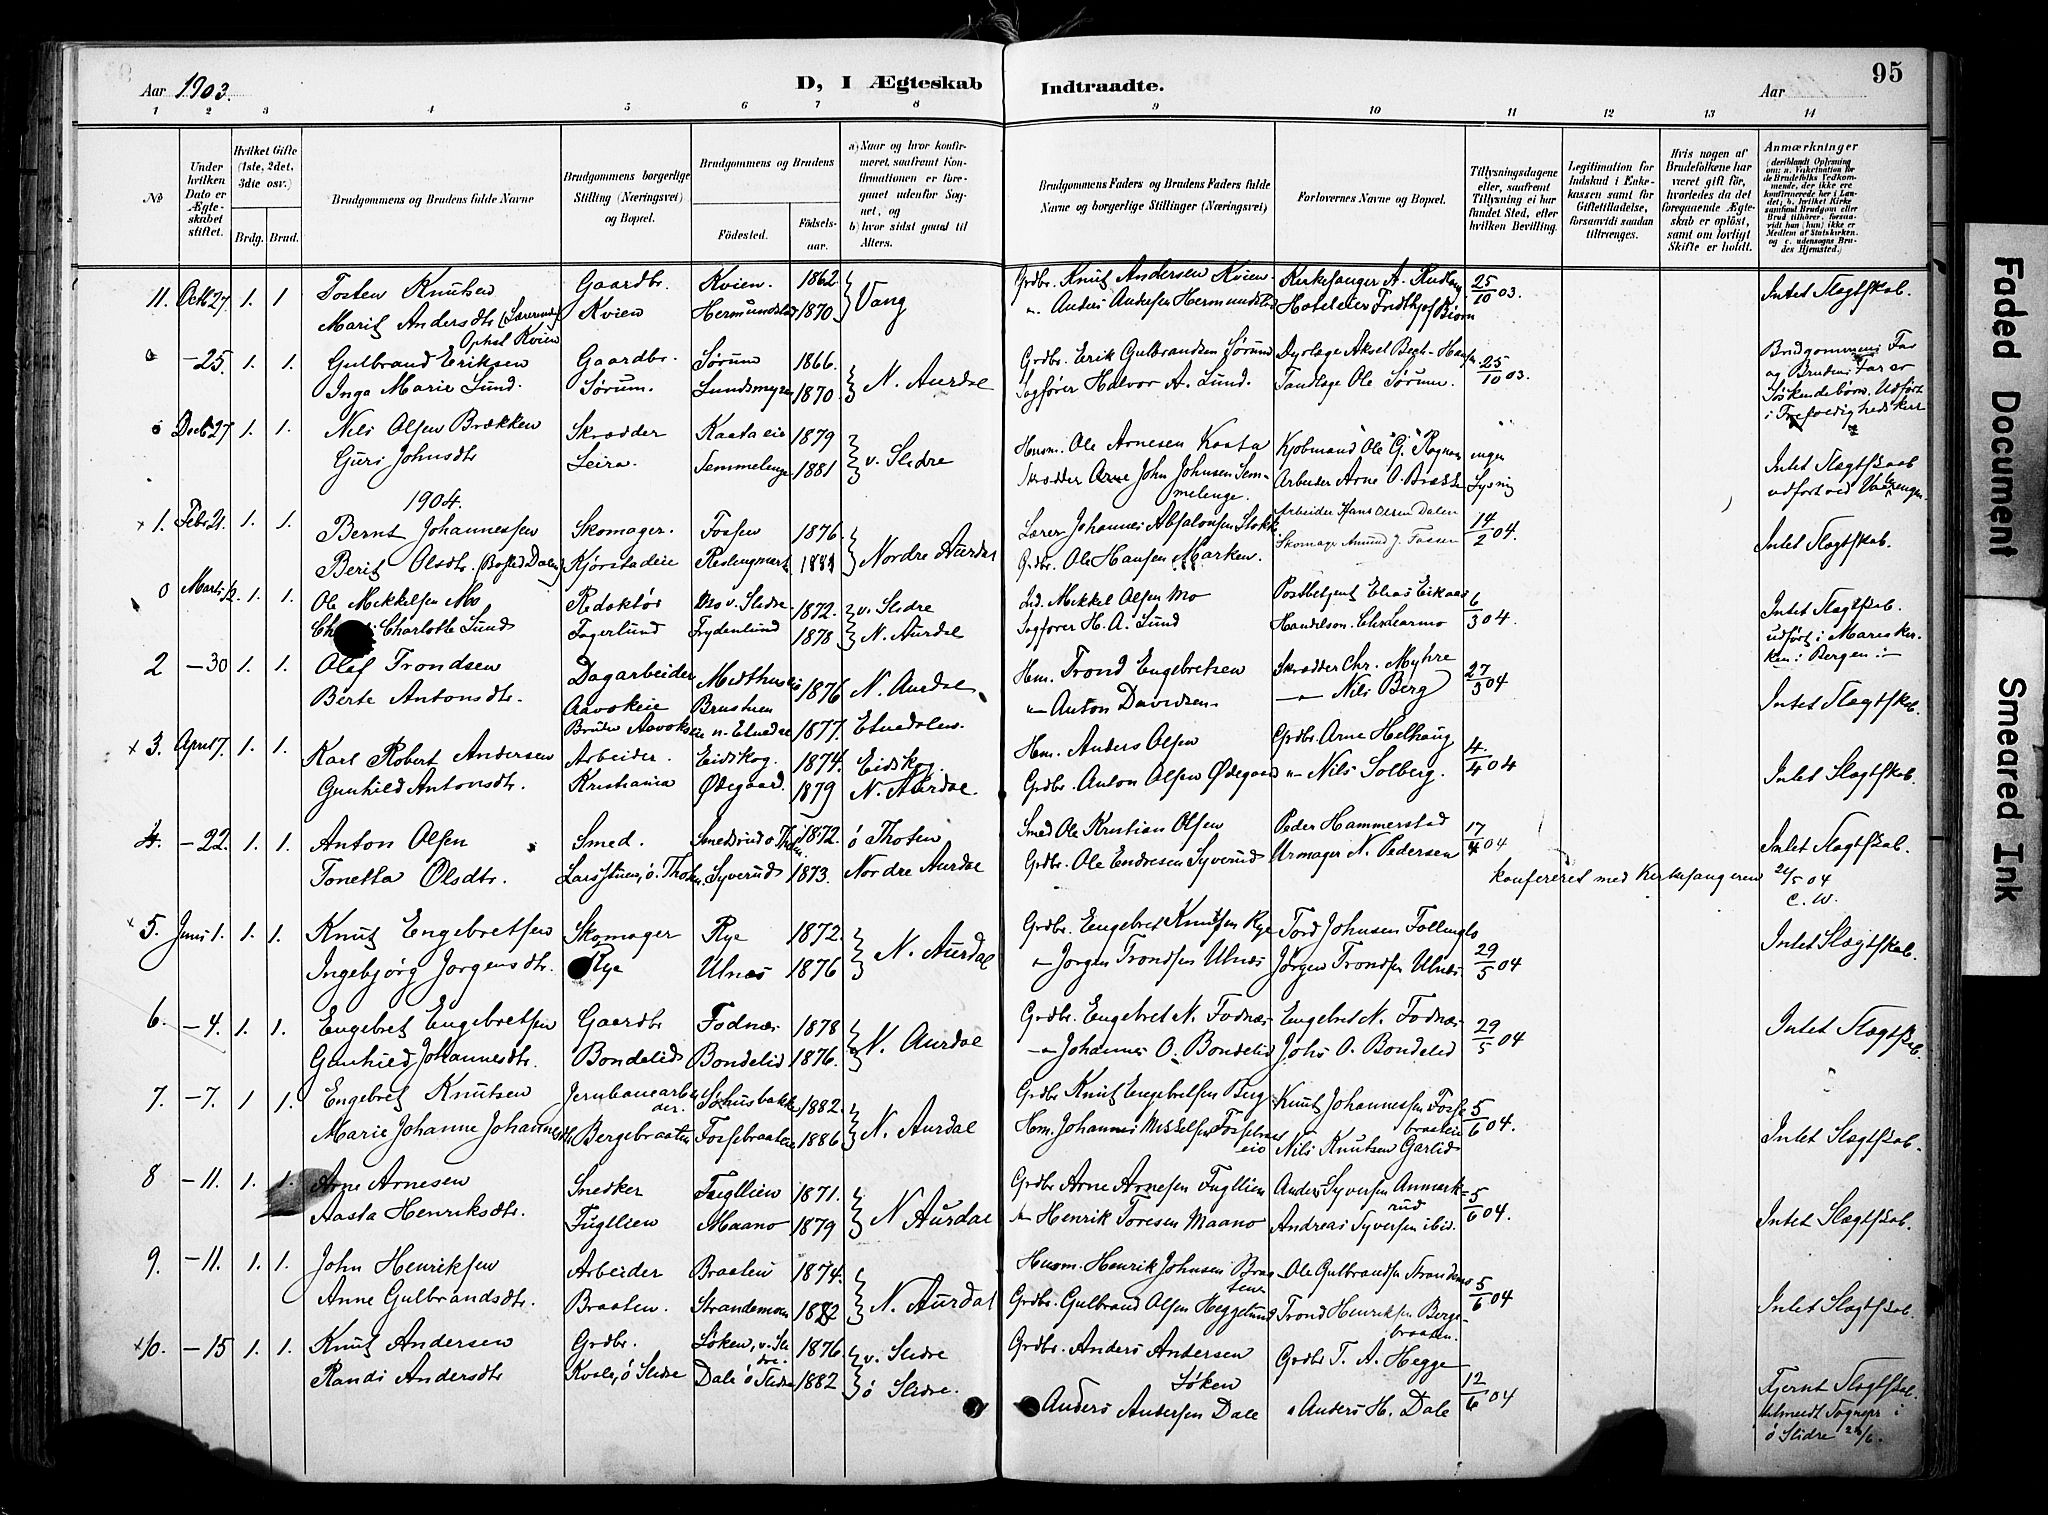 95
Aar 1903.
D, I Ægteskab Indtraadte.
Aar
1 2 3 4 5 6 7 8 9 10 11 12 13 14
No
Under hvilken Dato er Ægteskabet stiftet.
Hvilket Gifte (1ste, 2det, 3die osv.)
Brdg. Brud.
Brudgommens og Brudens fulde Navne
Brudgommens borgerlige Stilling (Næringsvei) og Bopæl.
Brudgommens og Brudens
Fødested. Fødsels-aar.
a) Naar og hvor konfirmeret, saafremt Konfirmationen er foregaaet udenfor Sognet, og
b) hvor sidst gaaet til Alters.
Brudgommens Faders og Brudens Faders fulde Navne og borgerlige Stillinger (Næringsvei)
Forlovernes Navne og Bopæl.
Tillysningsdagene eller, saafremt Tillysning ei har fundet Sted, efter hvilken Bevilling.
Legitimation for Indskud i Enkekassen samt for Giftetilladelse, forsaavidt saadan tiltrænges.
Hvis nogen af Brudefolkene har været gift før, hvorledes da det foregaaende Ægteskab er opløst, samt om lovligt Skifte er holdt.
Anmærkninger
11. Octb 27. 1. 1 Tosten Knutsen Gaardbr. Kvien. 1862 Vang Grdbr. Knut Andersen Kvien Kirkesanger A. 25/10 03. Intet Slægtskab.
Marit Andersdtr. (Lærerinde) Ophst Kvien Kvien Hermundstad 1870 " Anders Andersen Hermundstad Hoteleier Fridthjof Biørn
-25. 1. 1. Gulbrand Eriksen Gaardbr. Sørum 1866. N. Aurdal Grdbr. Erik Gulbrandsen Sørum Dyrlæge Aksel Begh-Hansen 25/10 03. Brudgommens Far og Brudens Far er Søskendebørn. Udført i Trefoldighedskirk
Inga Marie Lund. Sørum. Lundsmyren 1870. Sagfører Halvor A. Lund. Tandlæge Ole Sørum.
Decb 27 1. 1. Nils Olsen Brækken Skrædder Kaataeie 1879 v. Slidre Husm. Ole Arnesen Kaata Kjøbmand Ole G. ingen Lysning Intet Slægtskab
Guri Johnsdtr Leira. Semmelenge 1881 Skrædder John Johnsen Semmelenge. Arbeider Arne O. udført ved
1904.
1. Febr 21. 1. 1. Bernt Johannessen Skomager. Fossen 1876 Nordre Aurdal Lærer Johannes Absalonsen Arbeider Hans Olsen Dalen 14/2 04. Intet Slægtskab.
Berit Olsdtr. (Bosted Dalen) Kjørstadeie Grdbr. Ole Hansen Marken. Skomager Amund J. Fossen
0 Marts 12. 1. 1. Ole Mikkelsen Mo Redaktør Mo v. Slidre 1872. v. Slidre Ind. Mikkel Olsen Mo Postbetjent Elias Eikaas 6/3 04. Intet Slægtskab. udført i Mariekirken i Bergen
Charlotte Lund Fagerlund Frydenlund 1878 N. Aurdal Sagfører H. A. Lund
2 -30 1. 1. Olef Trondsen Dagarbeider 1876 N. Aurdal. Hm. Trond Engebretsen Skrædder Chr. Myhre 27/3 04 Intet Slægtskab.
Berte Antonsdtr. Aavokeie Brustuen " Anton Davidsen - " - Nils Berg
n. Etnedal 1877. Etnedalen.
3. April 7. 1. 1. Karl Robert Andersen Arbeider. Eidskog. 1874. Eidskog. Hm. Anders Olsen Grdbr. Arne Helhaug 4/4 04 Intet Slægtskab.
Gunhild Antonsdtr. Kristiania Ødegaard. 1879 N. Aurdal. Grdbr. Anton Olsen Ødegaard " Nils Solberg.
4. -22. 1. 1. Anton Olsen Smed. Smedsrud ø Thoten 1872. ø Thoten Smed Ole Kristian Olsen Peder Hammerstad 17/4 04 Intet Slægtskab.
Tonetta Olsdtr. Larsstuen, ø. Thoten Syverud 1873. Nordre Aurdal Grdbr. Ole Endresen Syverud Urmager N. Pedersen
konfereret med Kirkesangeren 24/5 04 C. W.
5. Juni 1. 1. 1. Knut Engebretsen Skomager Rye 1872. N. Aurdal Grdbr. Engebret Knutsen Rye Tord Johnsen Follinglo 29/5 04 Intet Slægtskab.
Ingebjørg Jørgensdtr. Rye Ulnæs 1876 - " Jørgen Trondsen Ulnæs Jørgen Trondsen Ulnæs
6. -4. 1. 1. Engebret Engebretsen Gaardbr Fodnæs 1878 N. Aurdal Grdbr. Engebret N. Fodnæs Engebret N. Fodnæs 29/5 04 Intet Slægtskab.
Gunhild Johannesdtr. Bondelid Bondelid 1876. - " - Johannes O. Bondelid Johs O. Bondelid
7. -7. 1 1. Engebret Knutsen Jernbanearbeider. 1882. N. Aurdal Grdbr Knut Engebretsen Berg Knut Johannessen Fossebraateneie 5/6 04. Intet Slægtskab.
Marie Johanne Johannesdtr Bergebraaten Fossebraaten 1886 Hm. Johannes Nils Knutsen Garlid
8 -11. 1. 1. Arne Arnesen Snedker Fugllien 1871. N Aurdal Grdbr Arne Arnesen Fugllien Anders Syversen Anmarkrud 5/6 04. Intet Slægtskab.
Aasta Henriksdtr. Fugllien Maano 1879 " Henrik Toresen Maano Andreas Syversen ibid.
9. -11. 1. 1. John Henriksen Arbeider Braaten 1874. N. Aurdal Husm. Henrik Johnsen Braaten Ole Gulbrandsen Strandemo 5/6 04 Intet Slægtskab.
Anne Gulbrandsdtr. Braaten. Strandemoen 1882 Grdbr. Gulbrand Olsen Heggelund Trond Henriksen Bergebraaten.
10. -15 1. 1. Knut Andersen Grdbr. Løken, v. Slidre. 1876. v. Slidre Grdbr. Anders Andersen Løken Grdbr T. A. Hegge 12/6 04 Fjernt Slægtskab. tilmeldt Sognepr i ø Slidre 24/6.
Randi Andersdtr Kvale, ø Slidre Dale ø Slidre 1882 ø Slidre. Anders Andersen Dale " Anders H. Dale
Faded Document
Smeared Ink